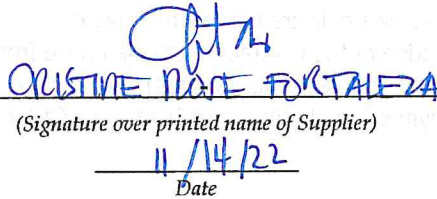 CRISTINE ROSE FORTALEZA
(Signature over printed name of Supplier)
11/14/22
Date